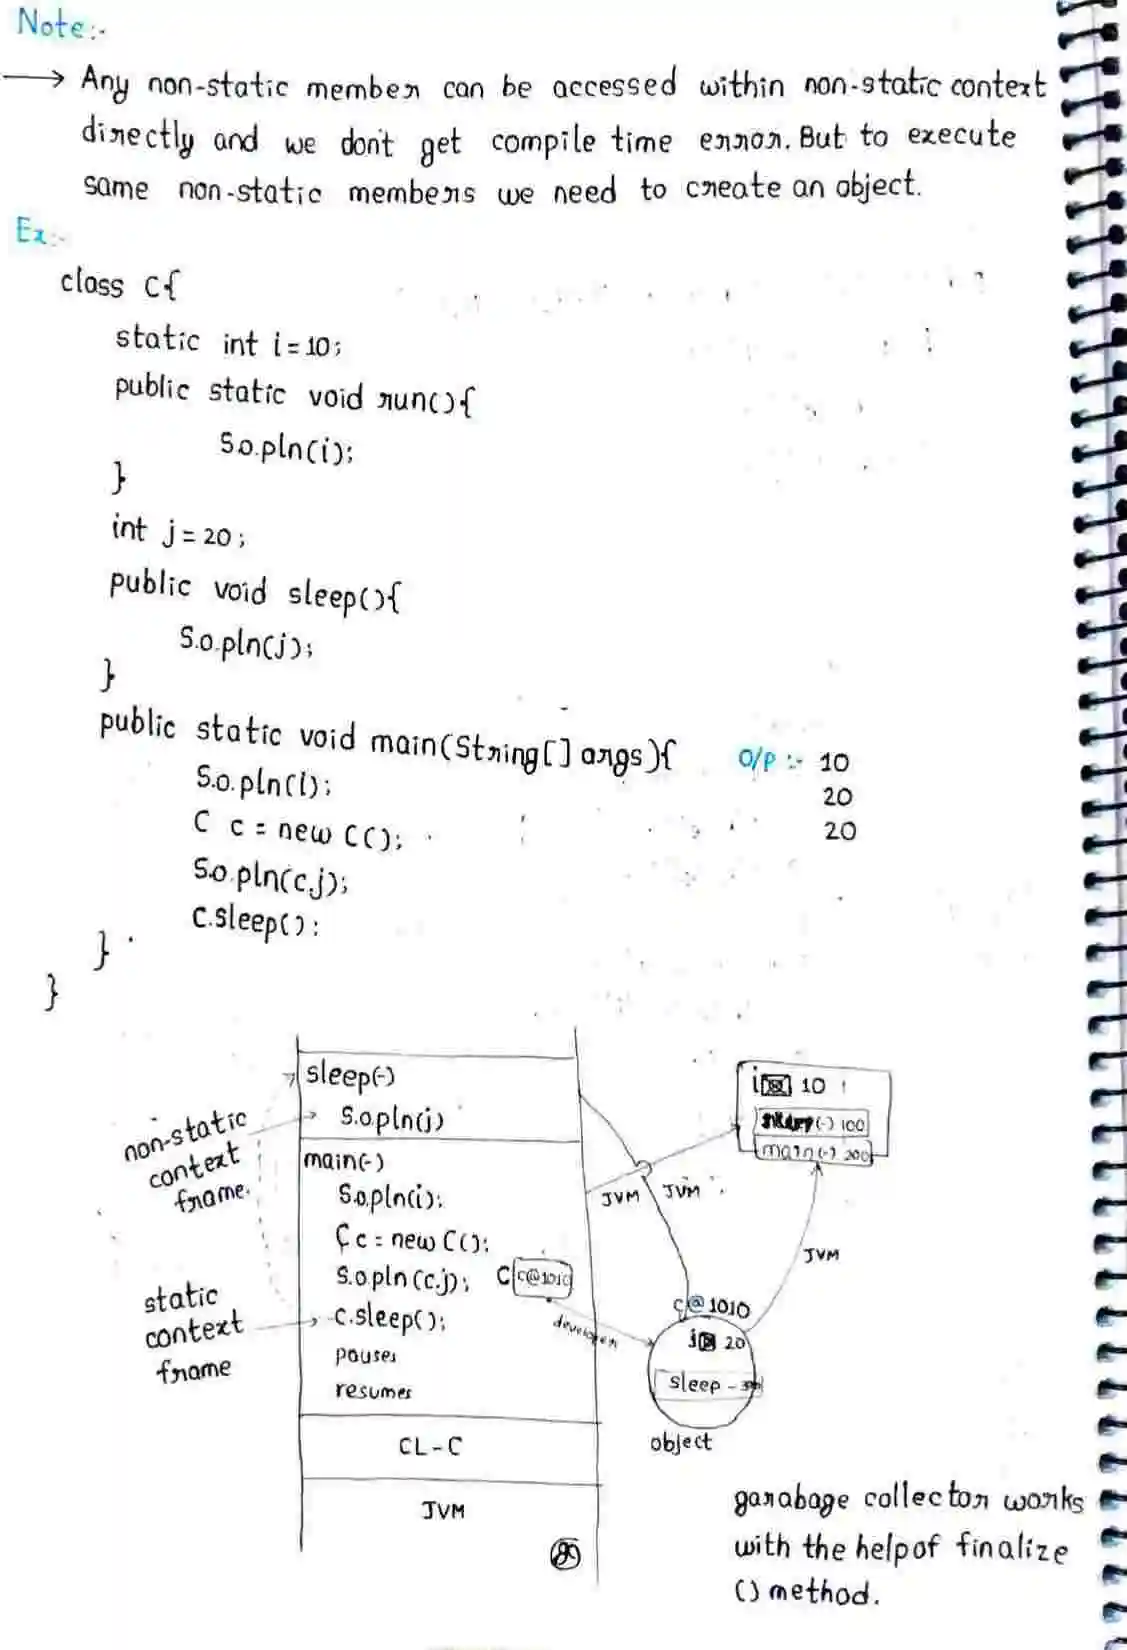 Note:-
→ Any non-static member can be accessed within non-static context
directly and we don't get compile time error. But to execute
same non-static members we need to create an object.
Ex:-
class C{
static int i=10;
public static void run(){
S.o.pln(i);
}
int j=20;
public void sleep(){
S.o.pln(j);
}
public static void main(String[] args){
S.o.pln(i);
C c = new C();
S.o.pln(c.j);
C.sleep():
}
}
O/P :- 10
20
20
sleep(-)
S.o.pln(j)
main(-)
S.o.pln(i);
C c = new C();
S.o.pln(c.j);
c.sleep();
pauses
resumes
CL-C
JVM
non-static
context
frame.
static
context
frame
C c@1010
developer
JVM
JVM
JVM
i 10
(-) 100
main(-) 200
c@1010
j 20
sleep -
object
garabage collector works
with the help of finalize
() method.